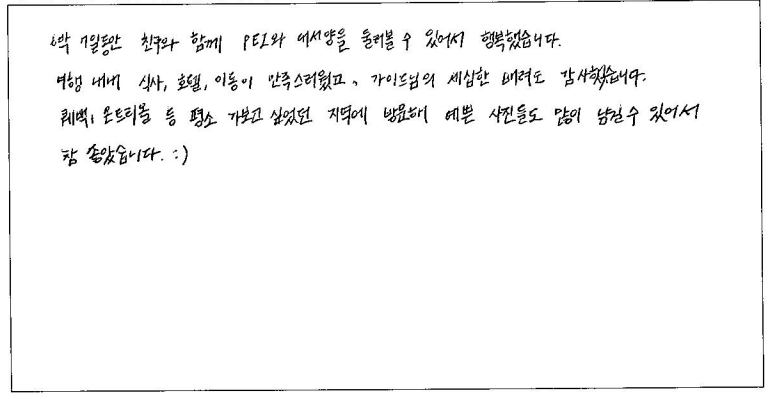 6박 7일동안 친구와 함께 PEI와 대서양을 둘러볼 수 있어서 행복했습니다.
여행 내내 식사, 호텔, 이동이 만족스러웠고, 가이드님의 세심한 배려도 감사했습니다.
퀘벡, 몬트리올 등 평소 가보고 싶었던 지역에 방문해 예쁜 사진들도 많이 남길 수 있어서
참 좋았습니다. :)